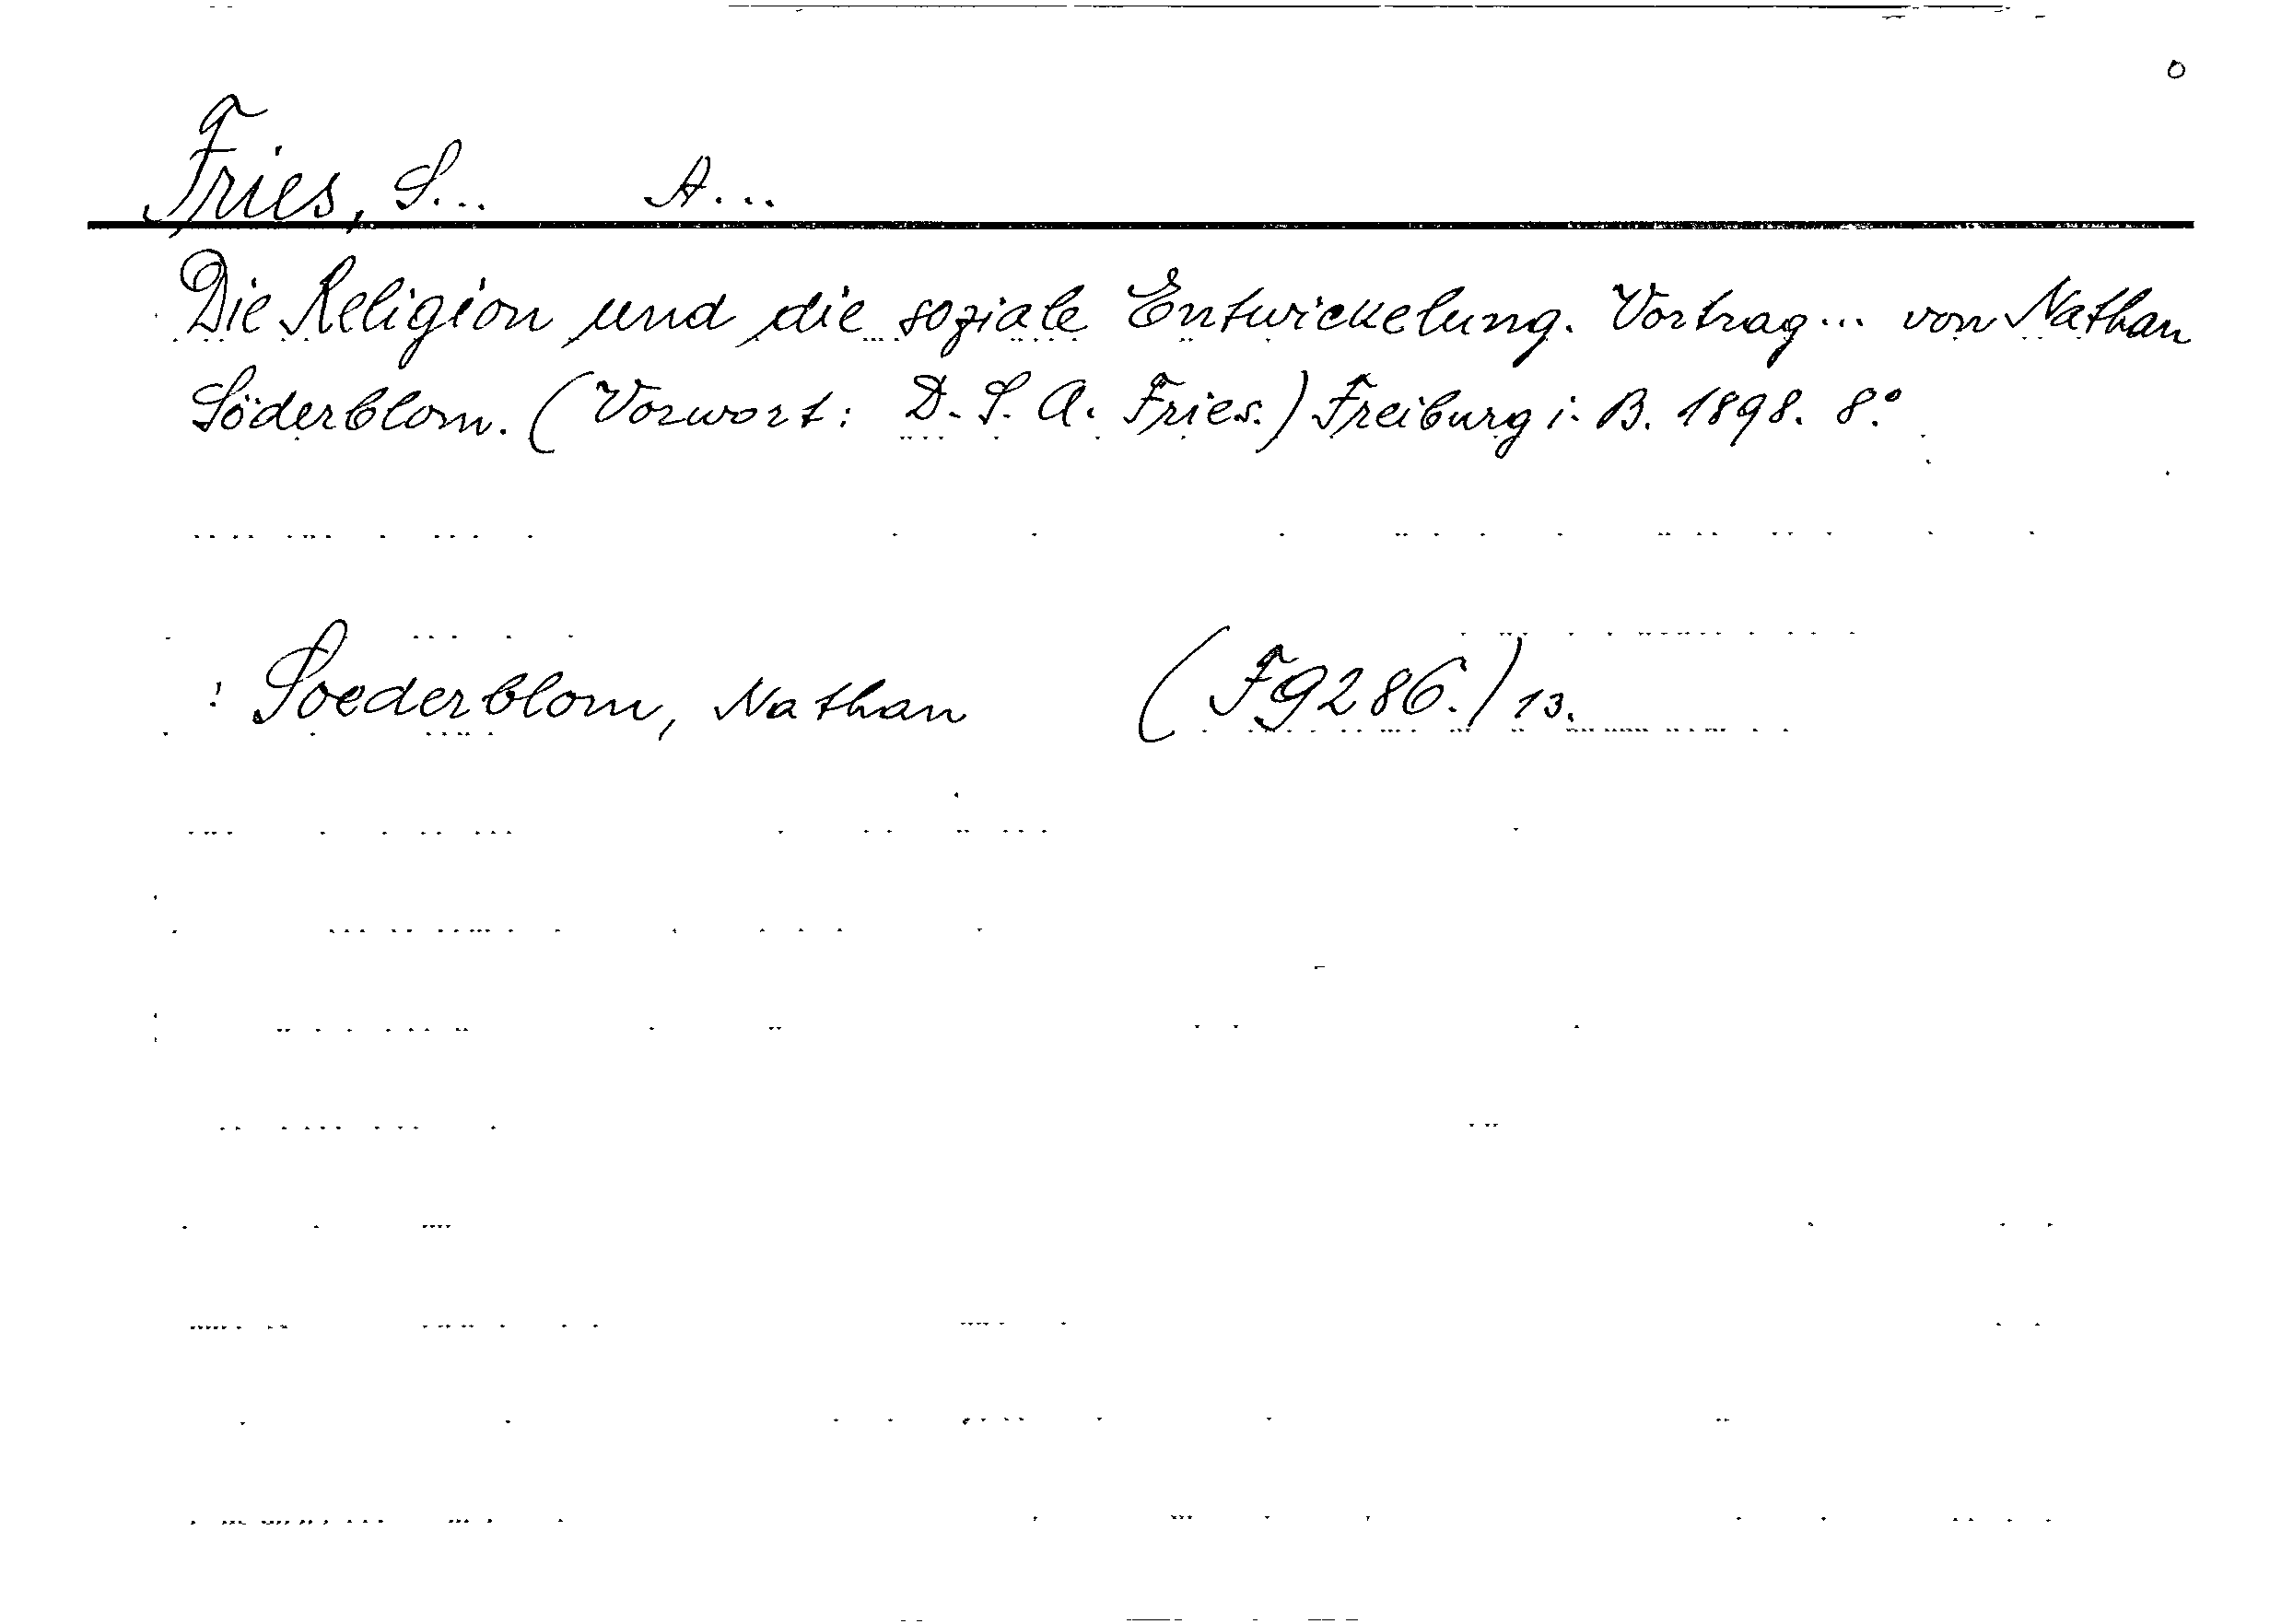 o
Fries, S... A...
Die Religion und die soziale Entwickelung. Vortrag... von Nathan
Söderblom. (Vorwort: D. S. A. Fries.) Freiburg i. B. 1898. 8.°
: Soederblom, Nathan (F9286.) 13.